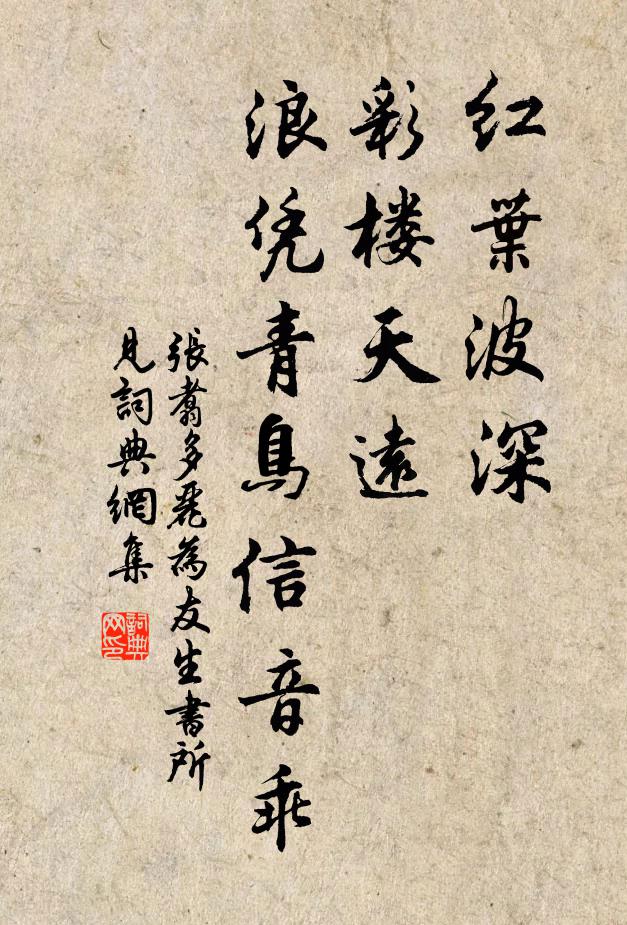 红葉波深
彩楼天遠
浪凭青鳥信音乖
張翥多麗為友生書所
見詞典網集
詞典网印